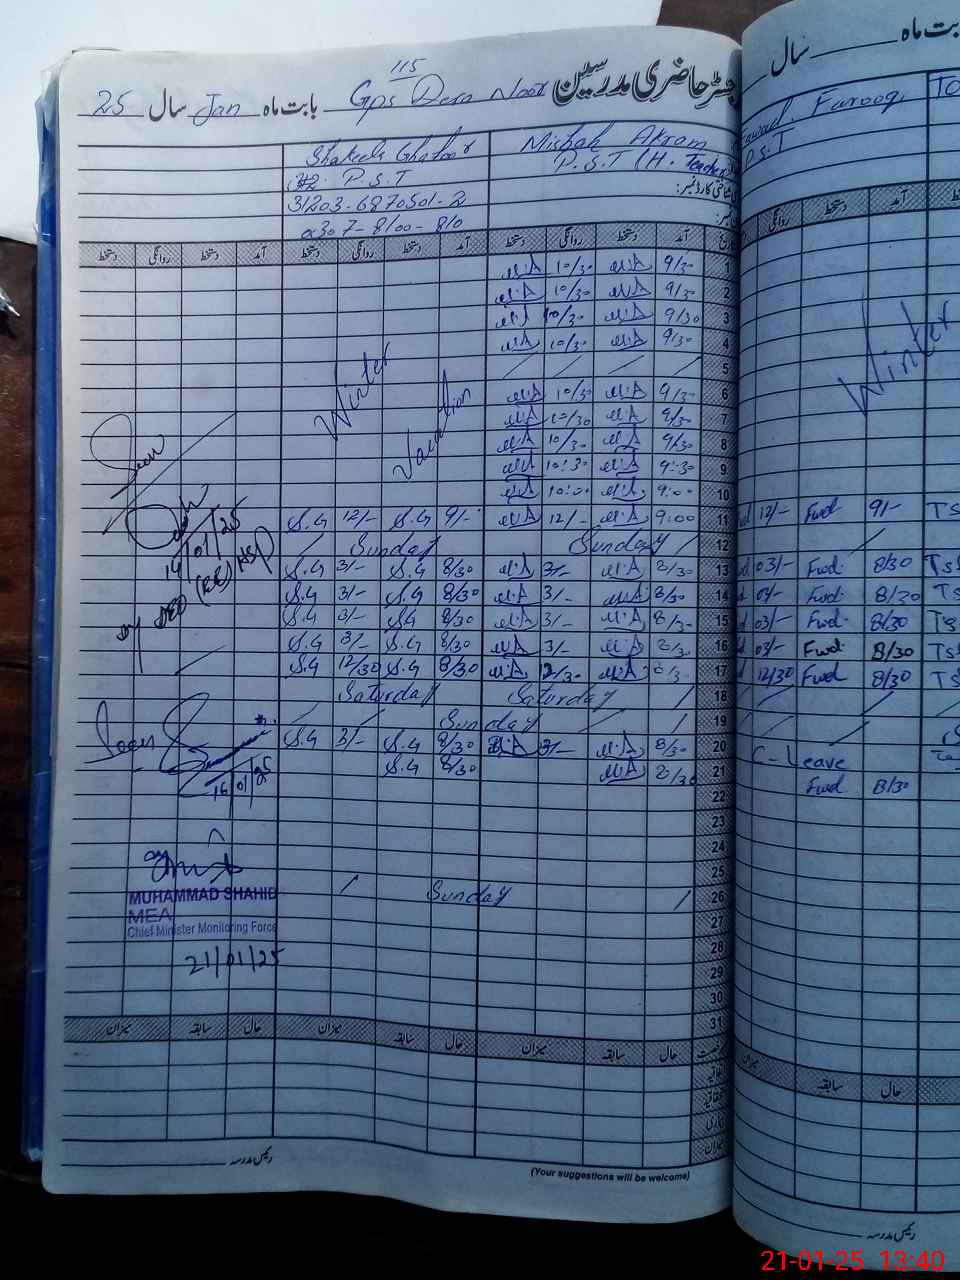 115
رجسٹر حاضری مدرسین Gps Dera Noor بابت ماہ Jan سال 25
Misbah Akram
Shakeela Ghafoor
P.S.T (H. Teacher)
P.S.T
31203-6870501-2
0307-8100-810
آمد دستخط روانگی دستخط آمد دستخط روانگی دستخط آمد دستخط روانگی دستخط
1 9/30 M.A 10/30 M.A
2 9/30 M.A 10/30 M.A
3 9/30 M.A 10/30 M.A
4 9/30 M.A 10/30 M.A
5
6 9/30 M.A 10/30 M.A
7 9/30 M.A 10/30 M.A
8 9/30 M.A 10/30 M.A
9 9:30 M.A 10:30 M.A
10 9:00 M.A 10:00 M.A
Winter Vacation
11 9:00 M.A 12/- M.A 9/- S.G 12/- S.G
12 Sunday Sunday
13 8/30 M.A 3/- M.A 8/30 S.G 3/- S.G
14 8/30 M.A 3/- M.A 8/30 S.G 3/- S.G
15 8/30 M.A 3/- M.A 8/30 S.G 3/- S.G
16 8/30 M.A 3/- M.A 8/30 S.G 3/- S.G
17 8/30 M.A 12/30 M.A 8/30 S.G 12/30 S.G
18 Saturday Saturday
19 Sunday
20 8/30 M.A 3/- M.A 8/30 S.G 3/- S.G
21 8/30 M.A 8/30 S.G
22
23
24
25
26 Sunday
27
28
29
30
31
Seen
14/01/25
Dy DEO (EE) HSP
Seen
16/01/25
MUHAMMAD SHAHID
MEA
Chief Minister Monitoring Force
21/01/25
حال سابقہ میزان حال سابقہ میزان حال سابقہ میزان
رئیس مدرسہ
(Your suggestions will be welcome)
بابت ماہ سال
Fawad Farooq
P.S.T
آمد دستخط روانگی
Winter
9/- Fwd 12/-
8/30 Fwd 03/-
8/30 Fwd 03/-
8/30 Fwd 03/-
8/30 Fwd 03/-
8/30 Fwd 12/30
C-Leave
8/30 Fwd
حال سابقہ میزان
رئیس مدرسہ
21-01-25 13:40